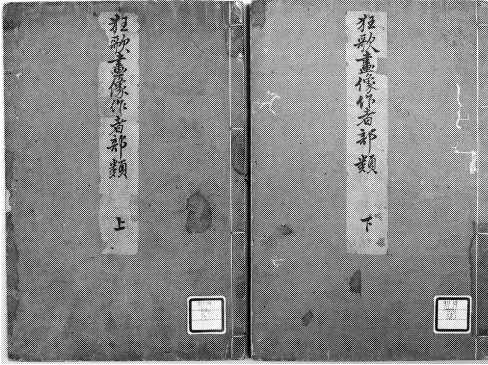 狂歌畫像作者部類 上
狂歌畫像作者部類 下